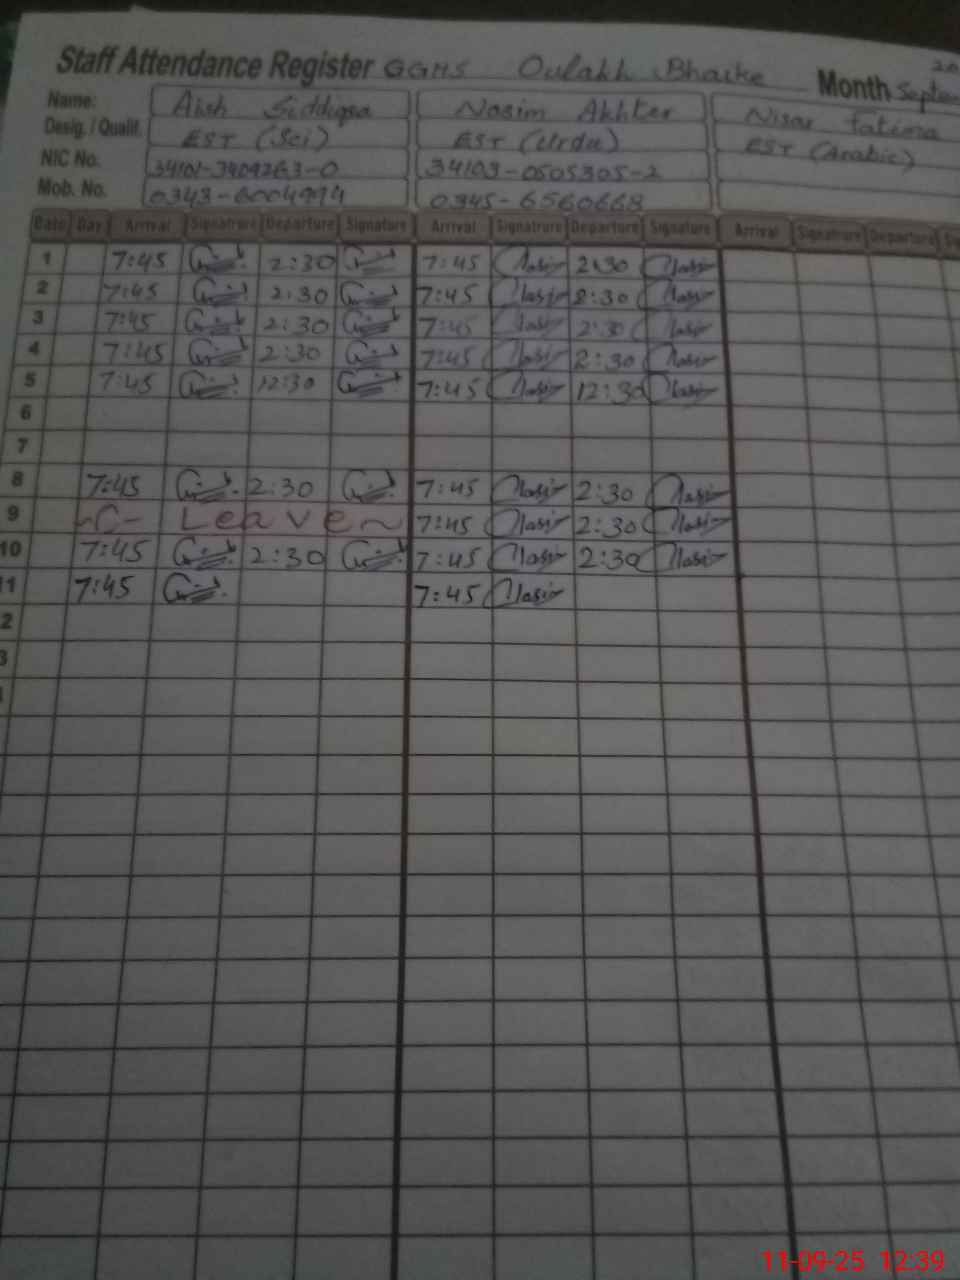 Staff Attendance Register GGHS Oulakh Bhaike Month
Name: Aish Siddiqsa Nasim Akhter Nisar Fatima
Desig. / Qualif. EST (Sci) EST (Urdu) EST (Arabic)
NIC No. 34101-3409263-0 34103-0505305-2
Mob. No. 0343-6004994 0345-6560668
Date Day Arrival Signatrure Departure Signature Arrival Signatrure Departure Signature Arrival Signatrure Departure
1 7:45 2:30 7:45 Nasim 2:30 Nasim
2 7:45 2:30 7:45 Nasim 2:30 Nasim
3 7:45 2:30 7:45 Nasim 2:30 Nasim
4 7:45 2:30 7:45 Nasim 2:30 Nasim
5 7:45 12:30 7:45 Nasim 12:30 Nasim
6
7
8 7:45 2:30 7:45 Nasim 2:30 Nasim
9 C- Leave 7:45 Nasim 2:30 Nasim
10 7:45 2:30 7:45 Nasim 2:30 Nasim
11 7:45 7:45 Nasim
2
3
11-09-25 12:39